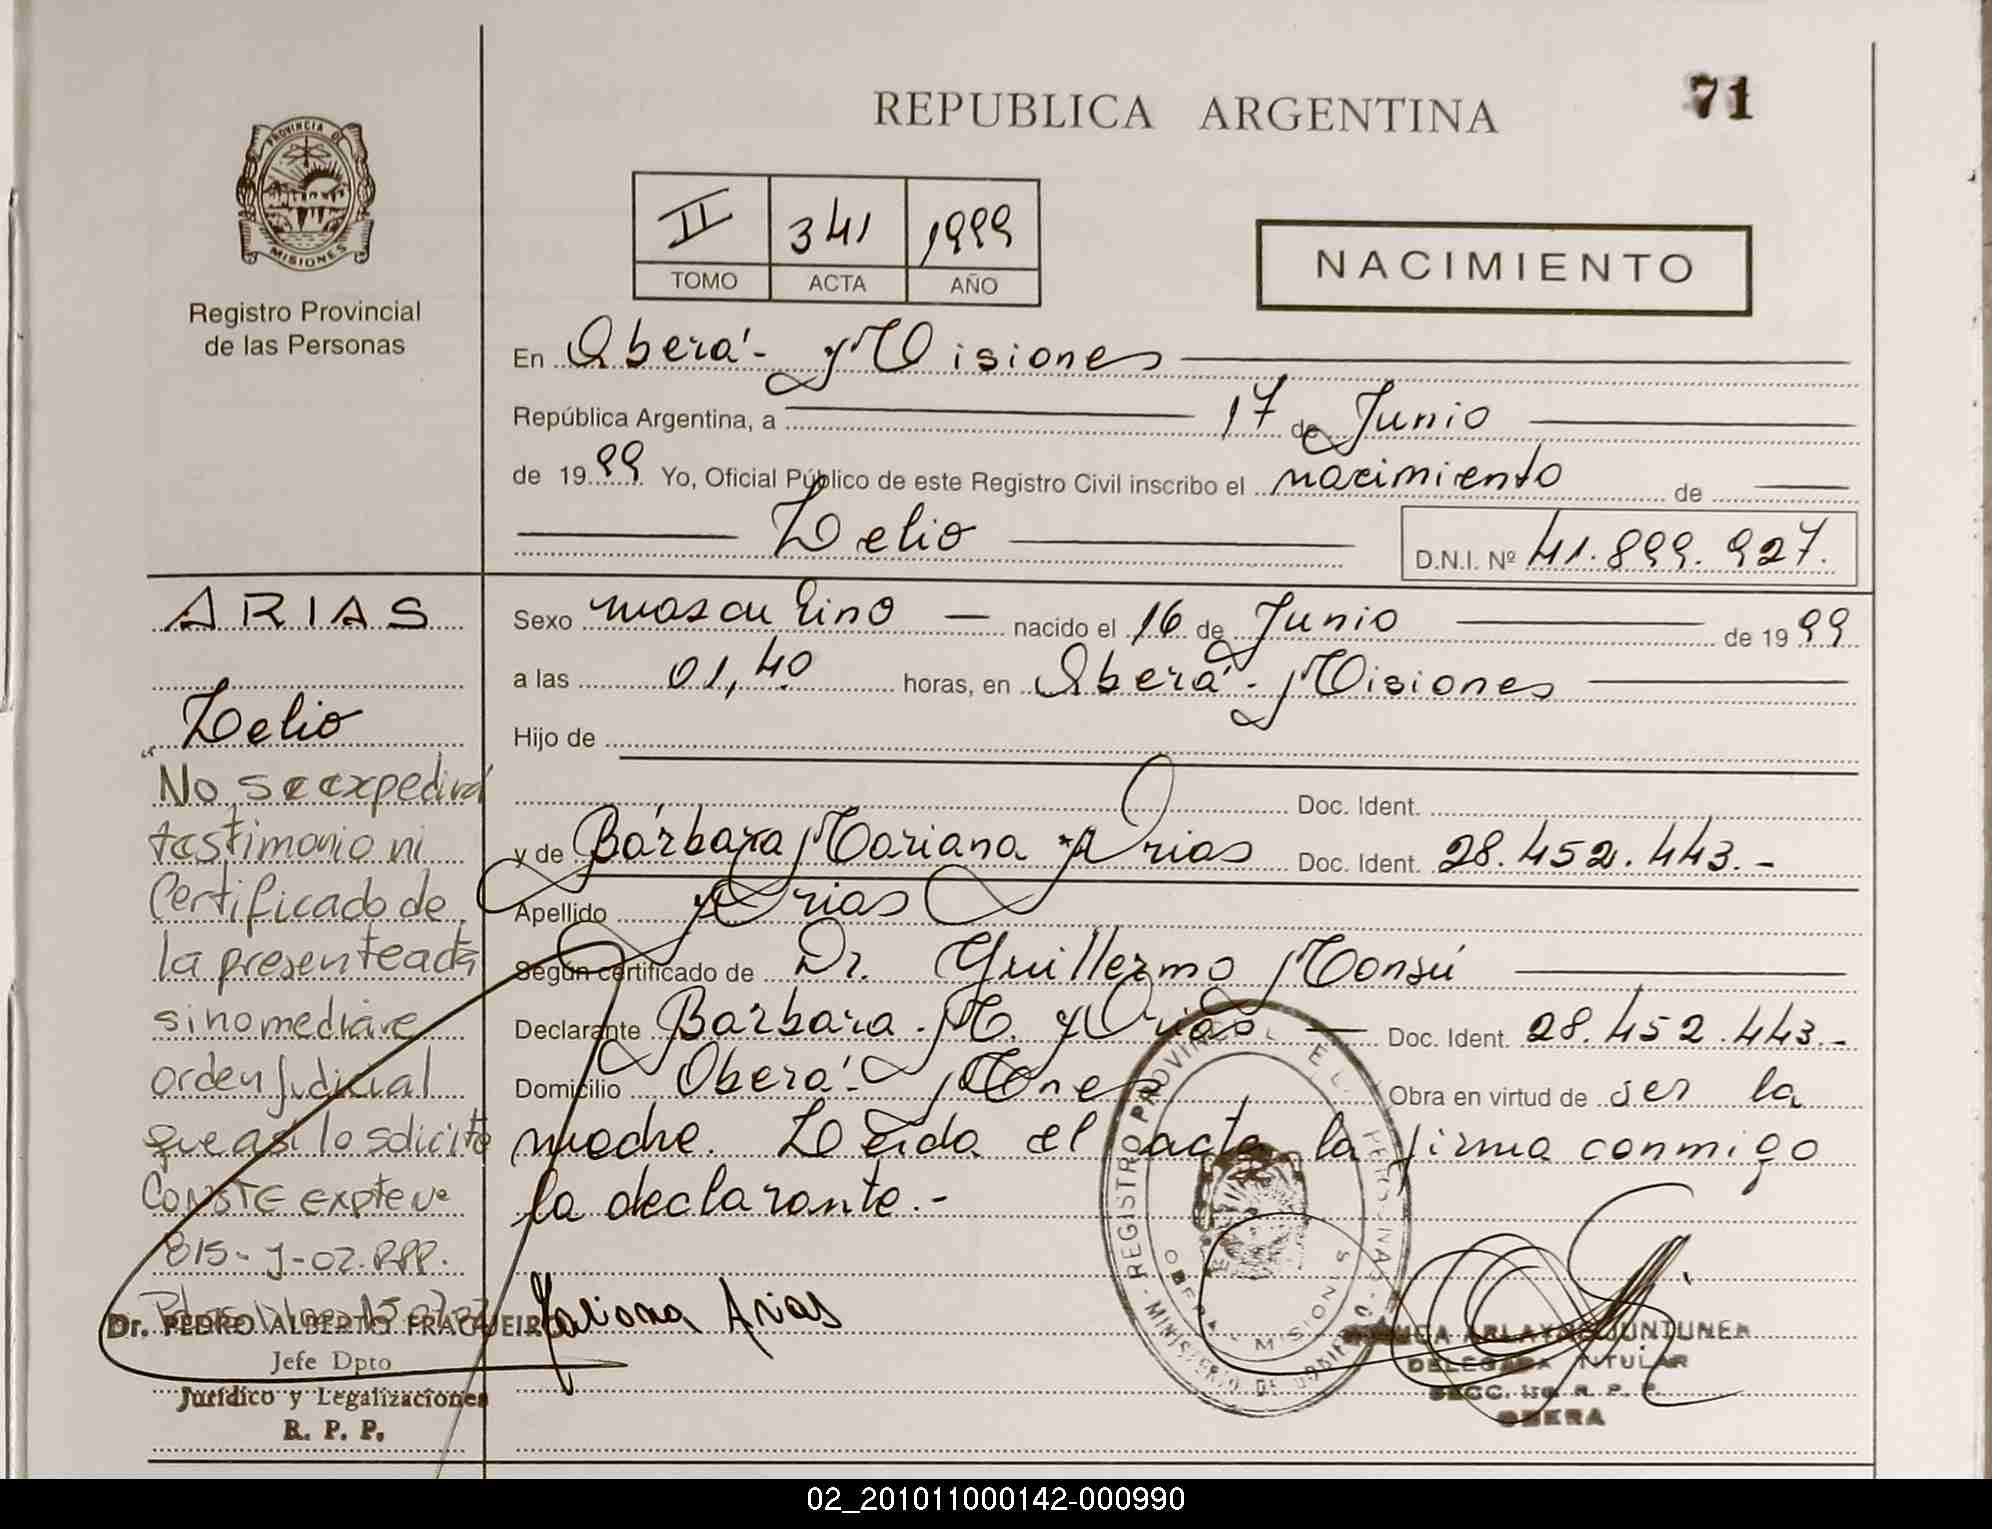 REPUBLICA ARGENTINA
71
PROVINCIA DE
MISIONES
Registro Provincial
de las Personas
II 341 1999
TOMO ACTA AÑO
NACIMIENTO
En Oberá - Misiones
República Argentina, a 17 de Junio
de 1999 Yo, Oficial Público de este Registro Civil inscribo el nacimiento de
Lelio D.N.I. Nº 41.899.927.
ARIAS
Lelio
"No se expedirá
testimonio ni
Certificado de
la presente acta
sino mediare
orden Judicial
que asi lo solicite
CONSTE expte Nº
815-J-02. RPP.
Dr. PEDRO ALBERTO FRAGUEIRO
Jefe Dpto
Jurídico y Legalizaciones
R. P. P.
Sexo masculino nacido el 16 de Junio de 1999
a las 01,40 horas, en Oberá - Misiones
Hijo de
Doc. Ident.
y de Bárbara Mariana Arias Doc. Ident. 28.452.443.-
Apellido Arias
Según certificado de Dr. Guillermo Monsú
Declarante Bárbara M. Arias Doc. Ident. 28.452.443.-
Domicilio Oberá - Mnes Obra en virtud de ser la
madre. Leída el acta la firma conmigo
la declarante.-
Mariana Arias
REGISTRO PROVINCIAL DE LAS PERSONAS - MINISTERIO DE GOBIERNO
OBERA - MISIONES
DELEGADA TITULAR
SECC. R. P. P.
OBERA
02_201011000142-000990